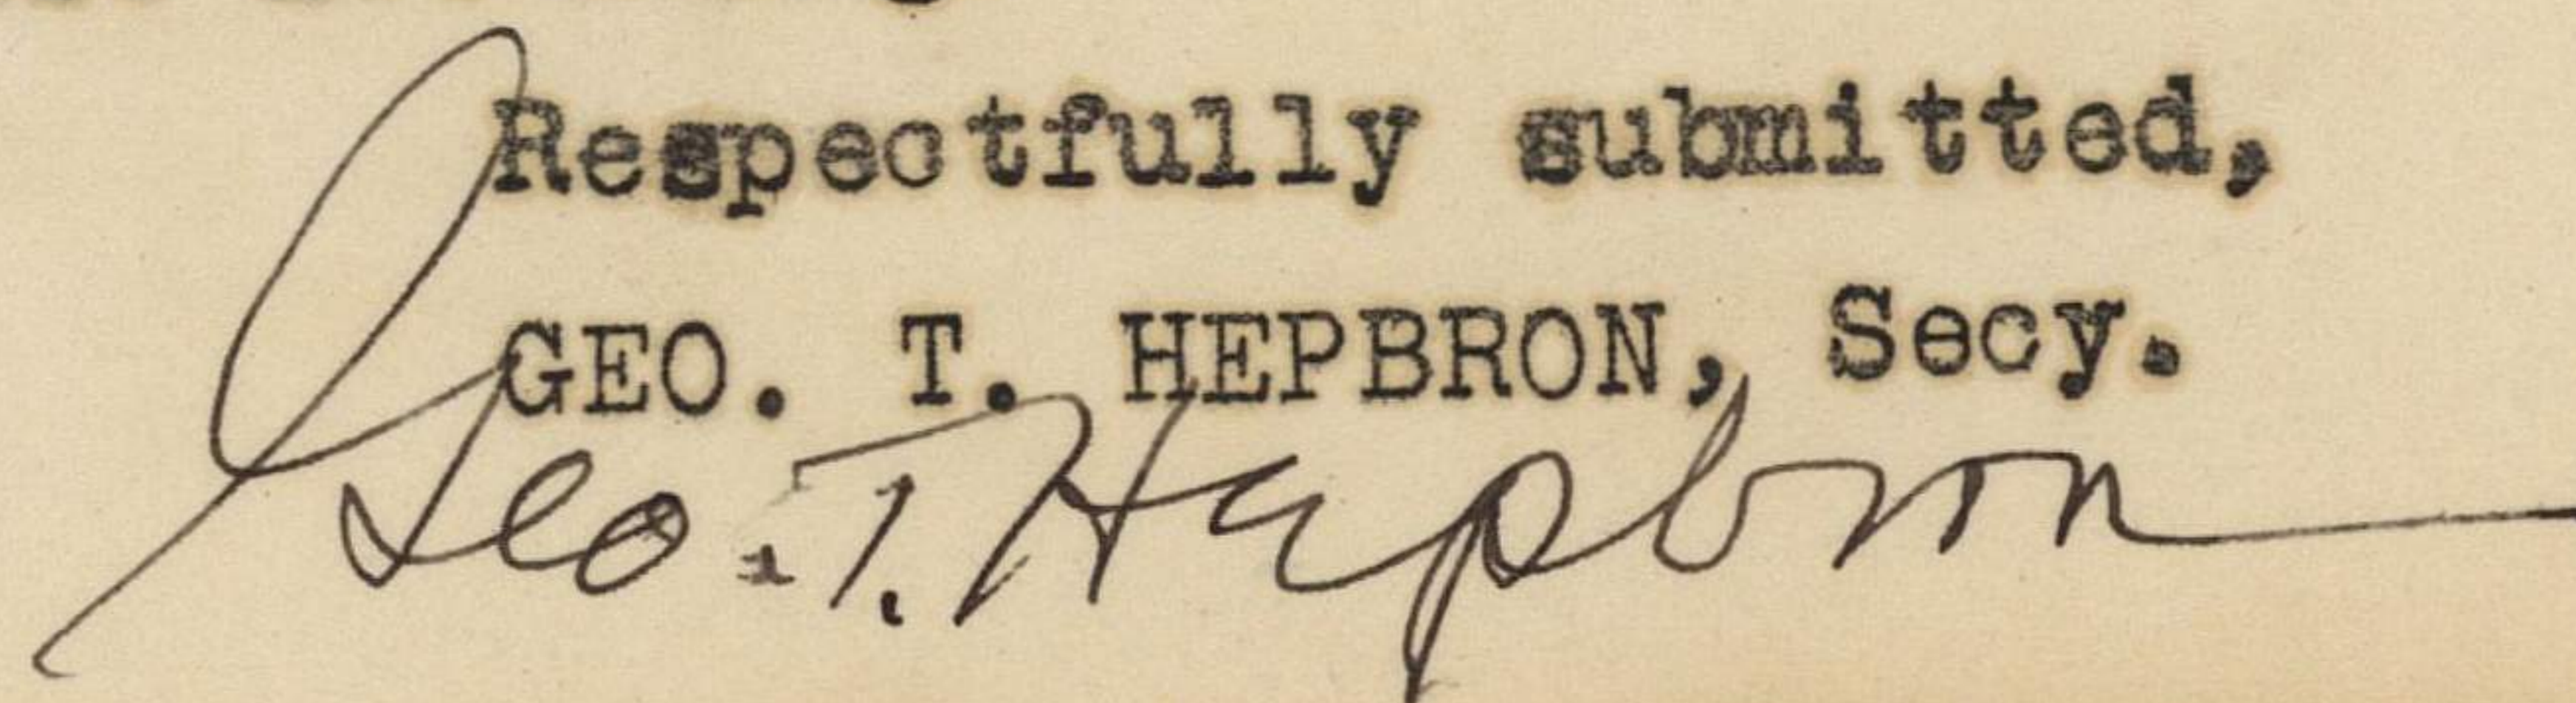 Respectfully submitted,
GEO. T. HEPBRON, Secy.
Geo. T. Hepbron